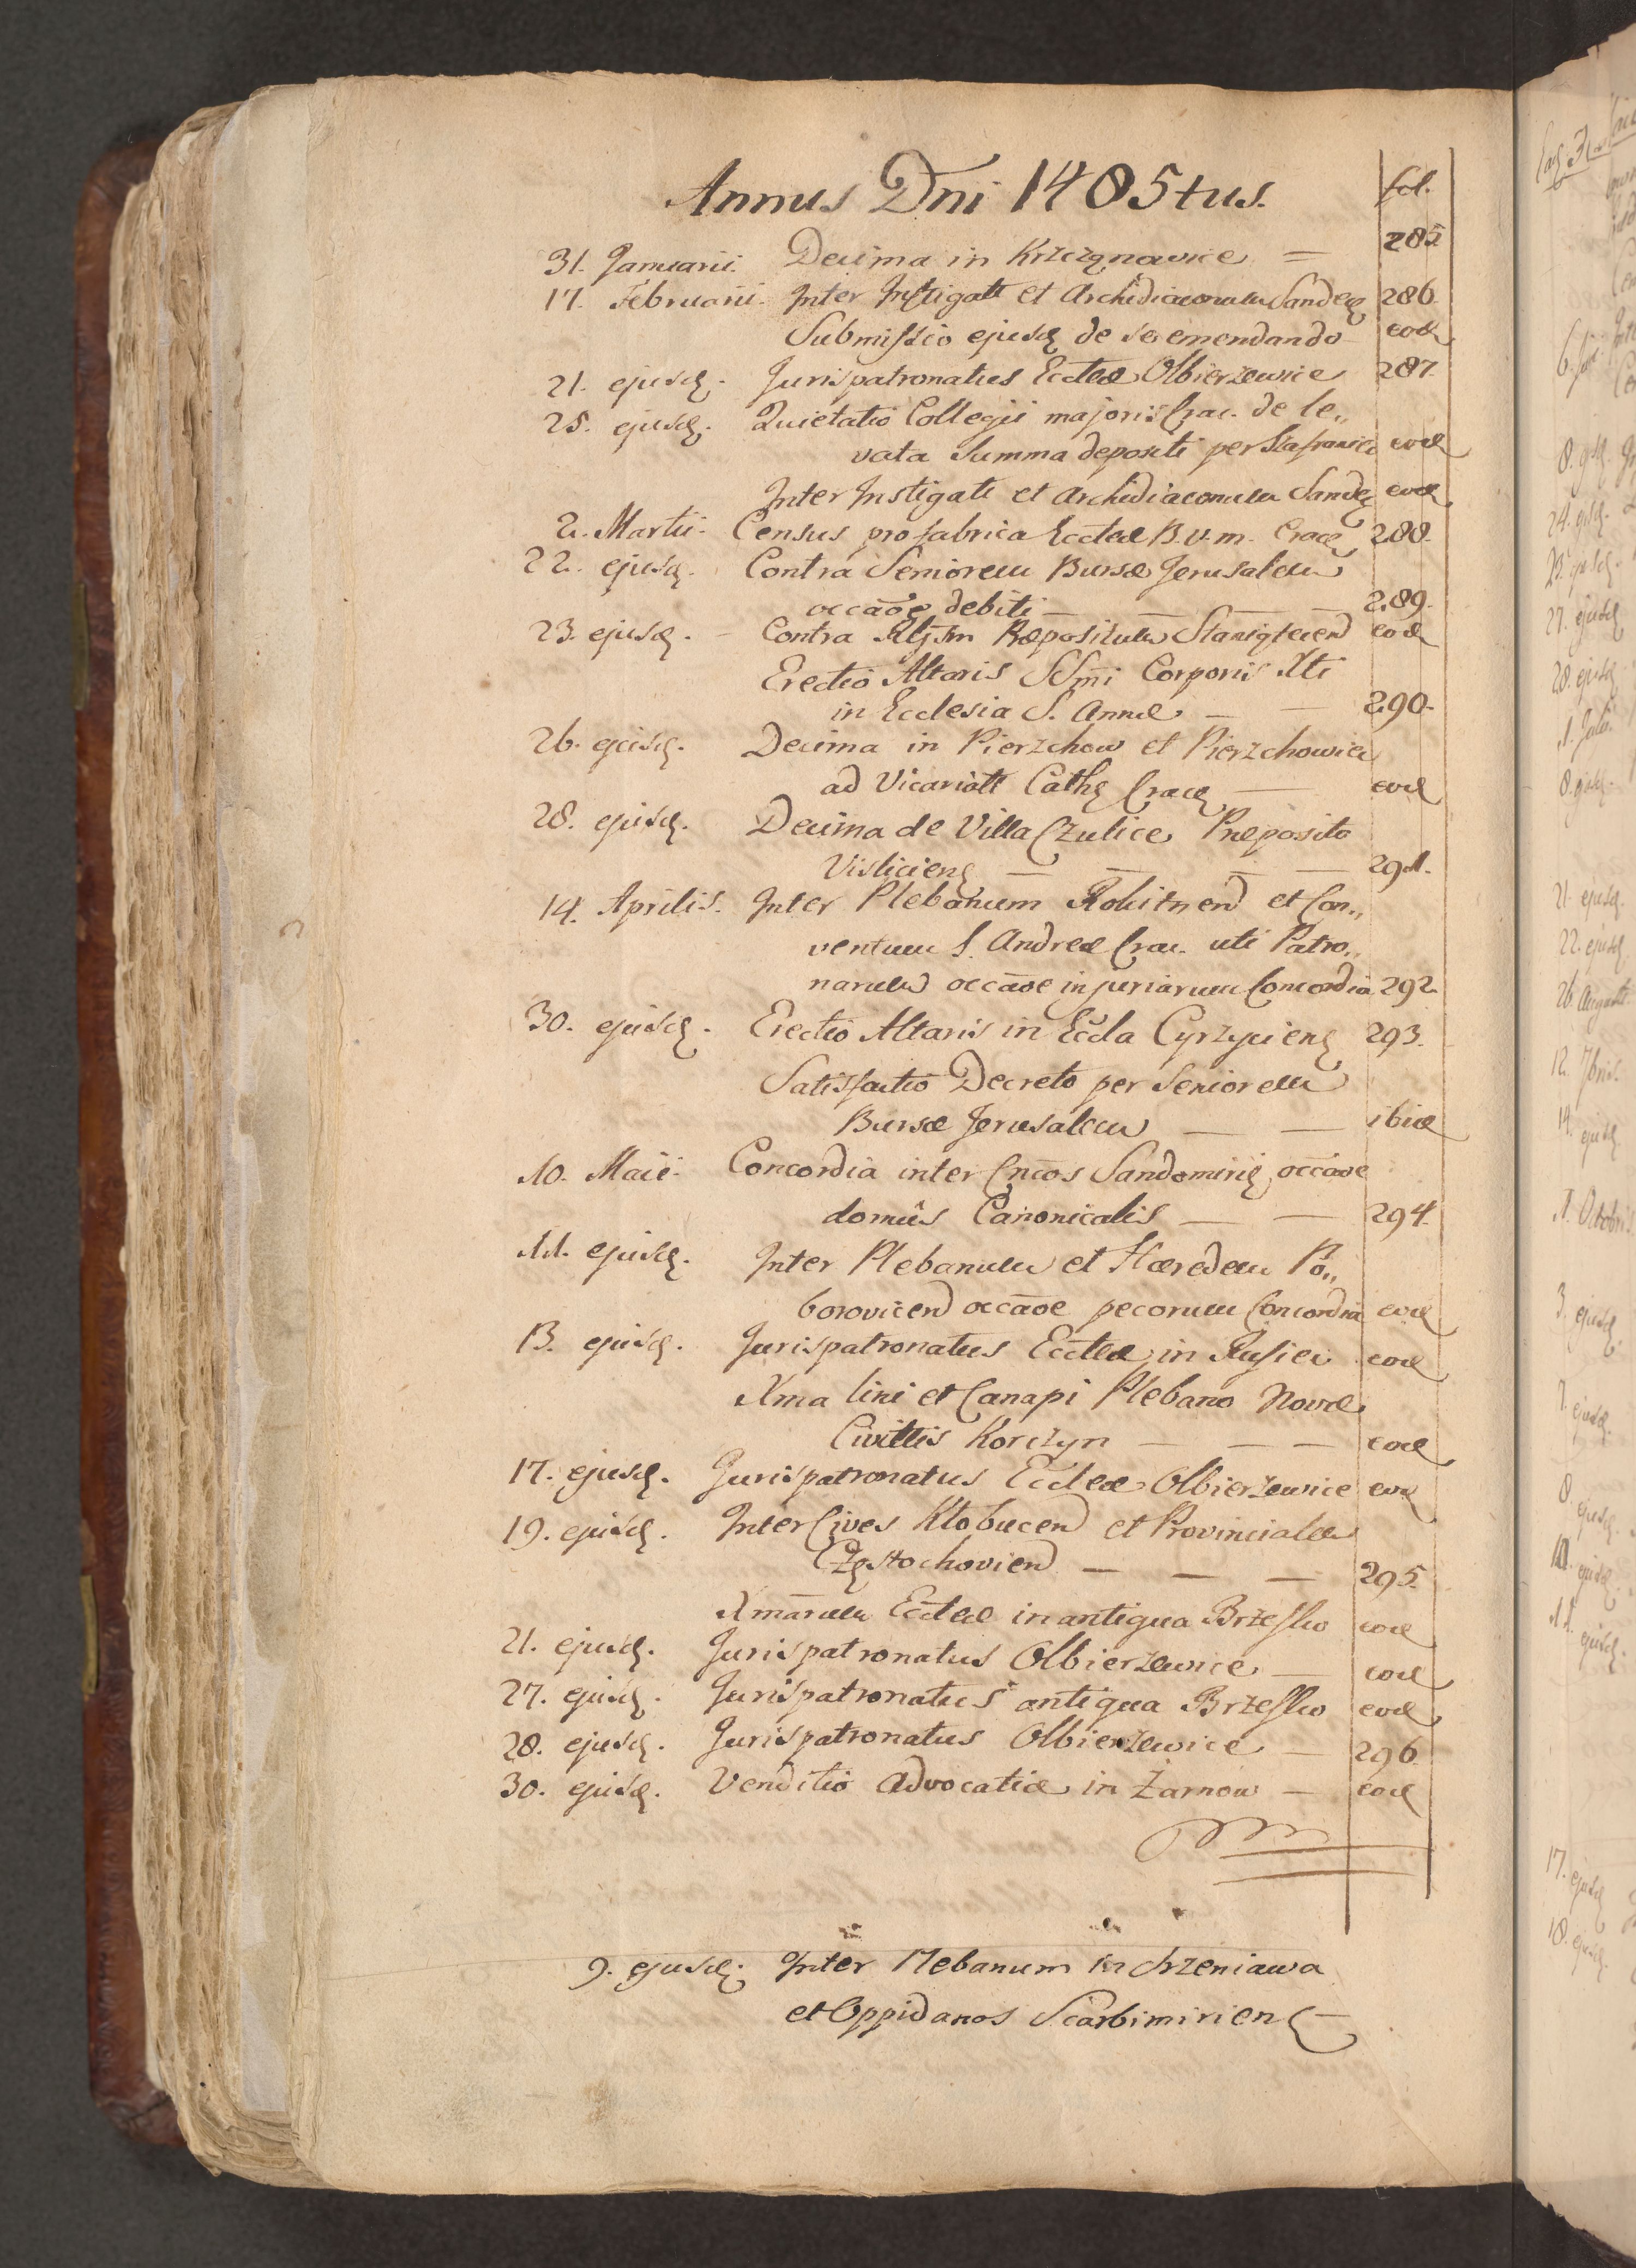 Annus Dni 1485tus. fol.
31. Januarii. Decima in Krzczęnowice = 285
17. Februarii. Inter Instigatt et Archidiaconum Sandeę 286.
Submissio ejusd de se emendando eod
21. ejusd. Jurispatronatus Ecclae Olbierzowice 287.
25. ejusd. Quietatio Collegii majoris Crac. de le„
vata Summa depositi per eod
Inter Instigatt et Archidiaconum Sandeę eod
2. Martii. Census pro fabrica Ecclae B.V.m. Crace 288.
22. ejusd. Contra Seniorem Bursae Jerusalem
occaõe debiti — — — — 289.
23. ejusd. — Contra Praepositum eod
Erectio Altaris SSmi Corporis Xti
in Ecclesia S. Annae — — 290.
26. ejusd. Decima in Pierzchow et Pierzchowice
ad Vicariatt Cathę Crace — eod
28. ejusd. Decima de Villa Czulice Praeposito
Vislicienę — — — — 291.
14. Aprilis. Inter Plebanum Rokitnen et Con„
ventum S. Andreae Crac. uti Patro„
narum occaõe injuriarum Concordia 292.
30. ejusd. Erectio Altaris in Eccla Cyrzycienę 293.
Satisfactio Decreto per Seniorem
Bursae Jerusalem — — ibid
10. Maii. Concordia inter Cnõos Sandomirię occaõe
domûs Canonicalis — — 294.
11. ejusd. Inter Plebanum et Haeredem Po„
borovicen occaõe pecorum Concordia eod
13. ejusd. Jurispatronatus Ecclae in Rusiec eod
Xma lini et Canapi Plebano Novae
Civittis Korczyn — — — eod
17. ejusd. Jurispatronatus Ecclae Olbierzowice eod
19. ejusd. Inter Cives Kłobucen et Provincialem
Częstochovien — — — 295.
Xmãrum Ecclae in antiqua Brzesko eod
21. ejusd. Jurispatronatus Olbierzowice — eod
27. ejusd. Jurispatronatus antiqua Brzesko eod
28. ejusd. Jurispatronatus Olbierzowice — 296
30. ejusd. Venditio Advocatiae in Żarnow — eod
9. ejusd. Inter Plebanum in Srzeniawa
et Oppidanos Scarbimirienę —